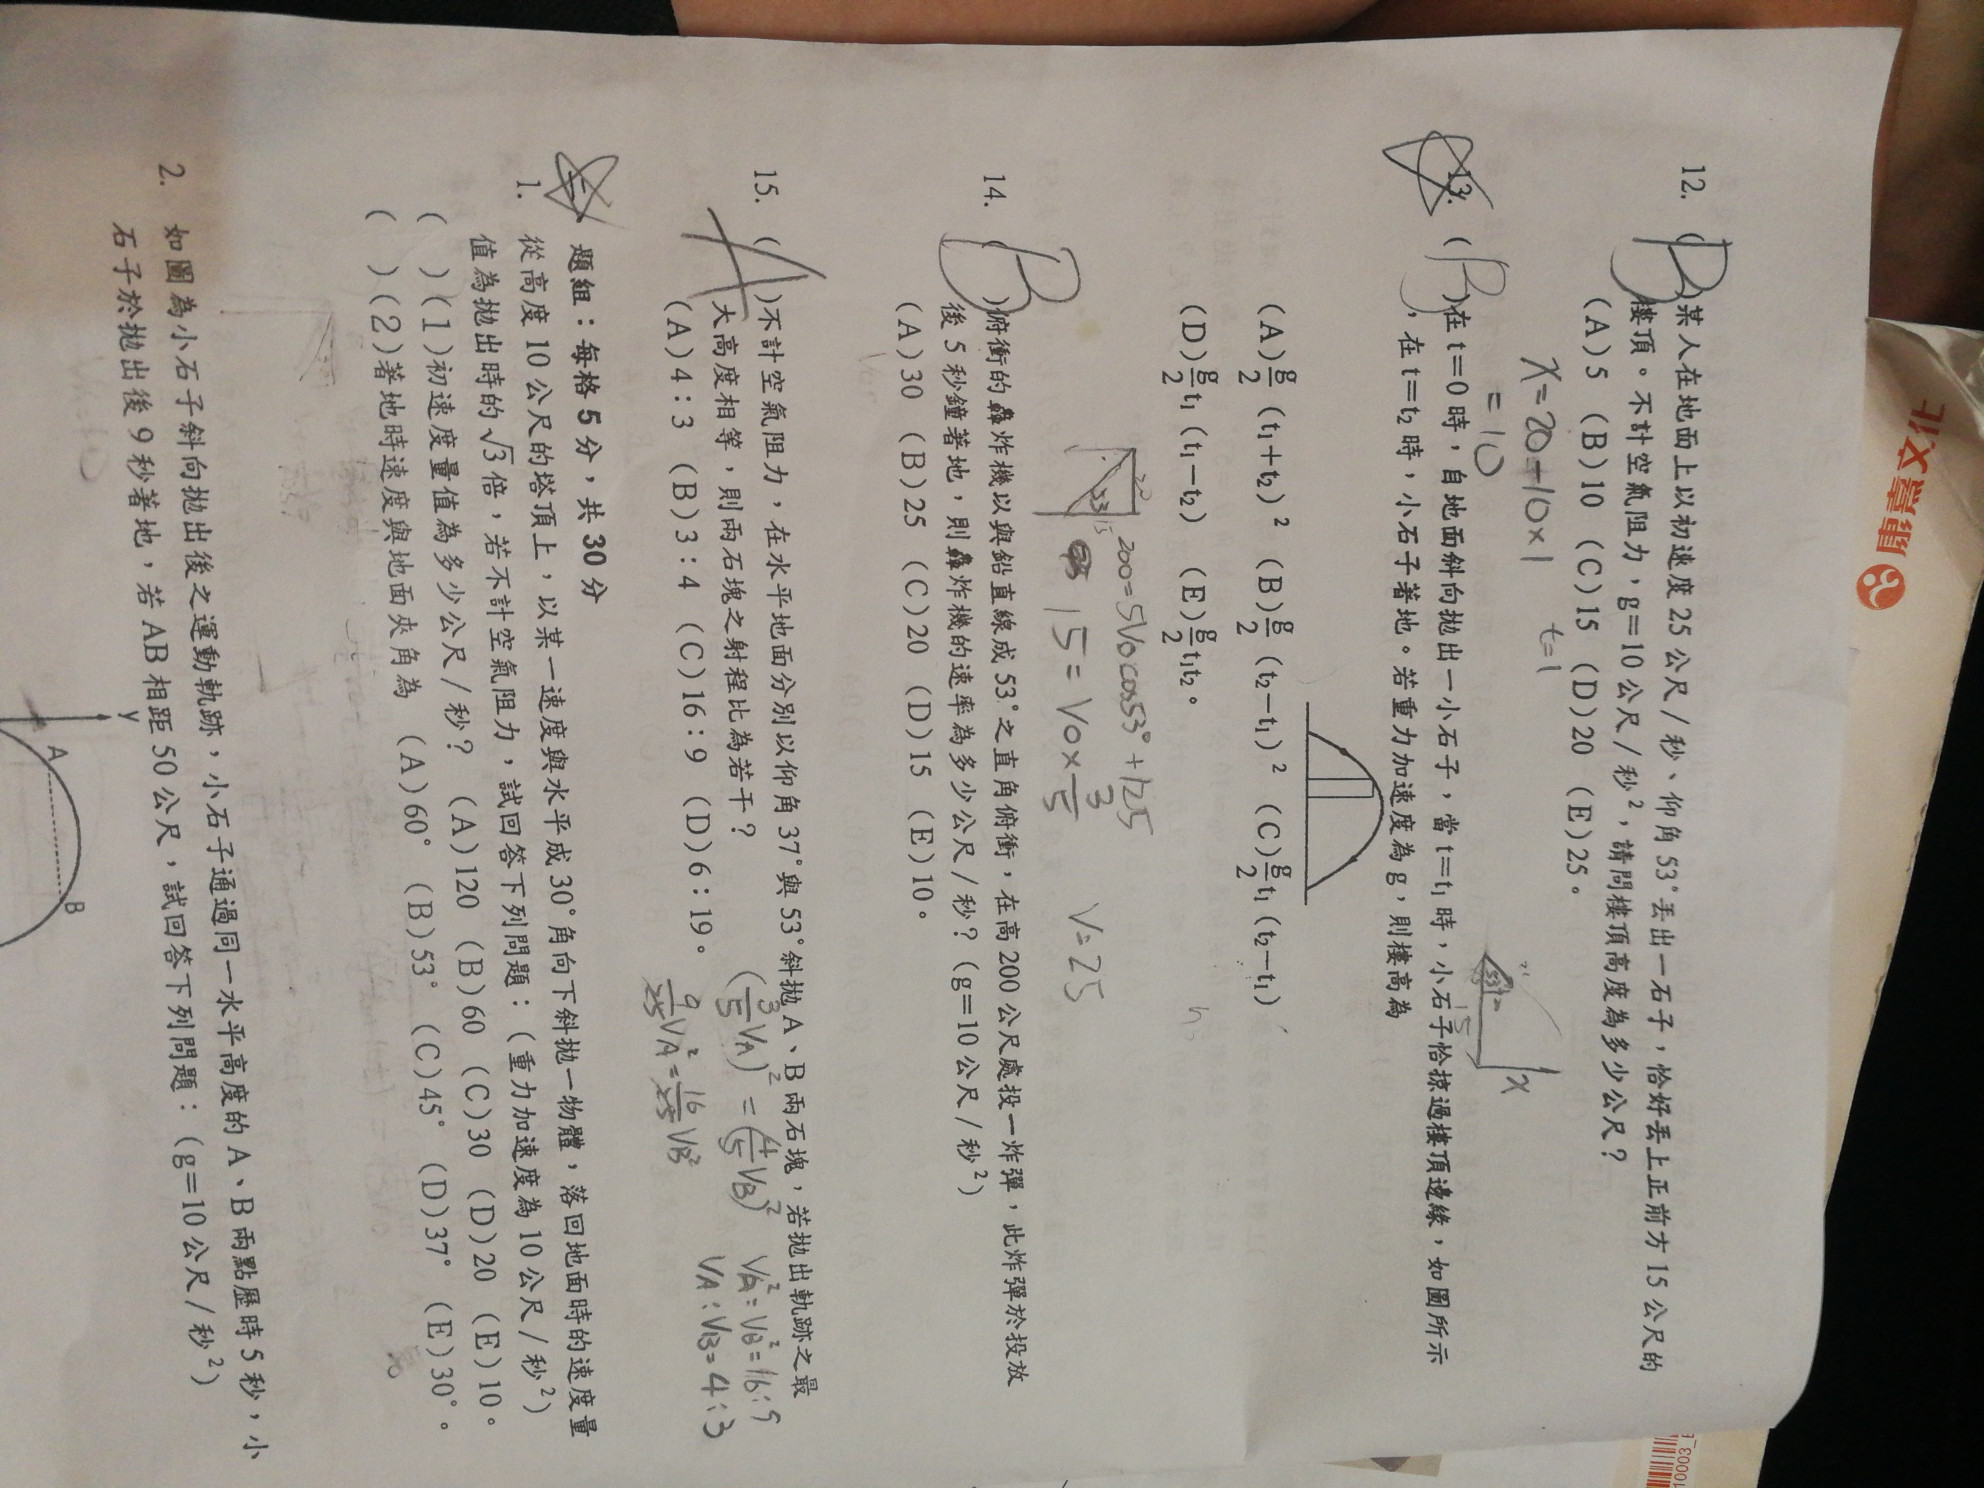 12. (B)某人在地面上以初速度 25 公尺/秒、仰角 53°丟出一石子,恰好丟上正前方 15 公尺的
樓頂。不計空氣阻力,g=10 公尺/秒²,請問樓頂高度為多少公尺?
(A)5 (B)10 (C)15 (D)20 (E)25。
x=20-10×1 t=1
=10
x
13. (B)在 t=0 時,自地面斜向拋出一小石子,當 t=t₁ 時,小石子恰掠過樓頂邊緣,如圖所示
,在 t=t₂ 時,小石子著地。若重力加速度為 g,則樓高為
(A)g/2 (t₁+t₂)² (B)g/2 (t₂-t₁)² (C)g/2 t₁(t₂-t₁)
(D)g/2 t₁(t₁-t₂) (E)g/2 t₁t₂。
200=5V0cos53°+125
15=V0×3/5 V=25
14. (B)俯衝的轟炸機以與鉛直線成 53°之直角俯衝,在高 200 公尺處投一炸彈,此炸彈於投放
後 5 秒鐘著地,則轟炸機的速率為多少公尺/秒?(g=10 公尺/秒²)
(A)30 (B)25 (C)20 (D)15 (E)10。
15. (A)不計空氣阻力,在水平地面分別以仰角 37°與 53°斜拋 A、B 兩石塊,若拋出軌跡之最
大高度相等,則兩石塊之射程比為若干?
(A)4:3 (B)3:4 (C)16:9 (D)6:19。
(3/5 VA)²=(4/5 VB)² VA²:VB²=16:9
9/25 VA²=16/25 VB² VA:VB=4:3
題組:每格 5 分,共 30 分
1. 從高度 10 公尺的塔頂上,以某一速度與水平成 30°角向下斜拋一物體,落回地面時的速度量
值為拋出時的√3倍,若不計空氣阻力,試回答下列問題:(重力加速度為 10 公尺/秒²)
( )(1)初速度量值為多少公尺/秒? (A)120 (B)60 (C)30 (D)20 (E)10。
( )(2)著地時速度與地面夾角為 (A)60° (B)53° (C)45° (D)37° (E)30°。
2. 如圖為小石子斜向拋出後之運動軌跡,小石子通過同一水平高度的 A、B 兩點歷時 5 秒,小
石子於拋出後 9 秒著地,若 AB 相距 50 公尺,試回答下列問題:(g=10 公尺/秒²)
y
A B
翰學文化